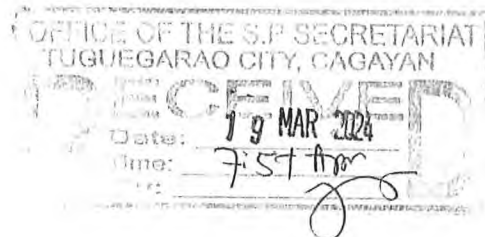 OFFICE OF THE S.P SECRETARIAT
TUGUEGARAO CITY, CAGAYAN
RECEIVED
Date: 19 MAR 2024
Time: